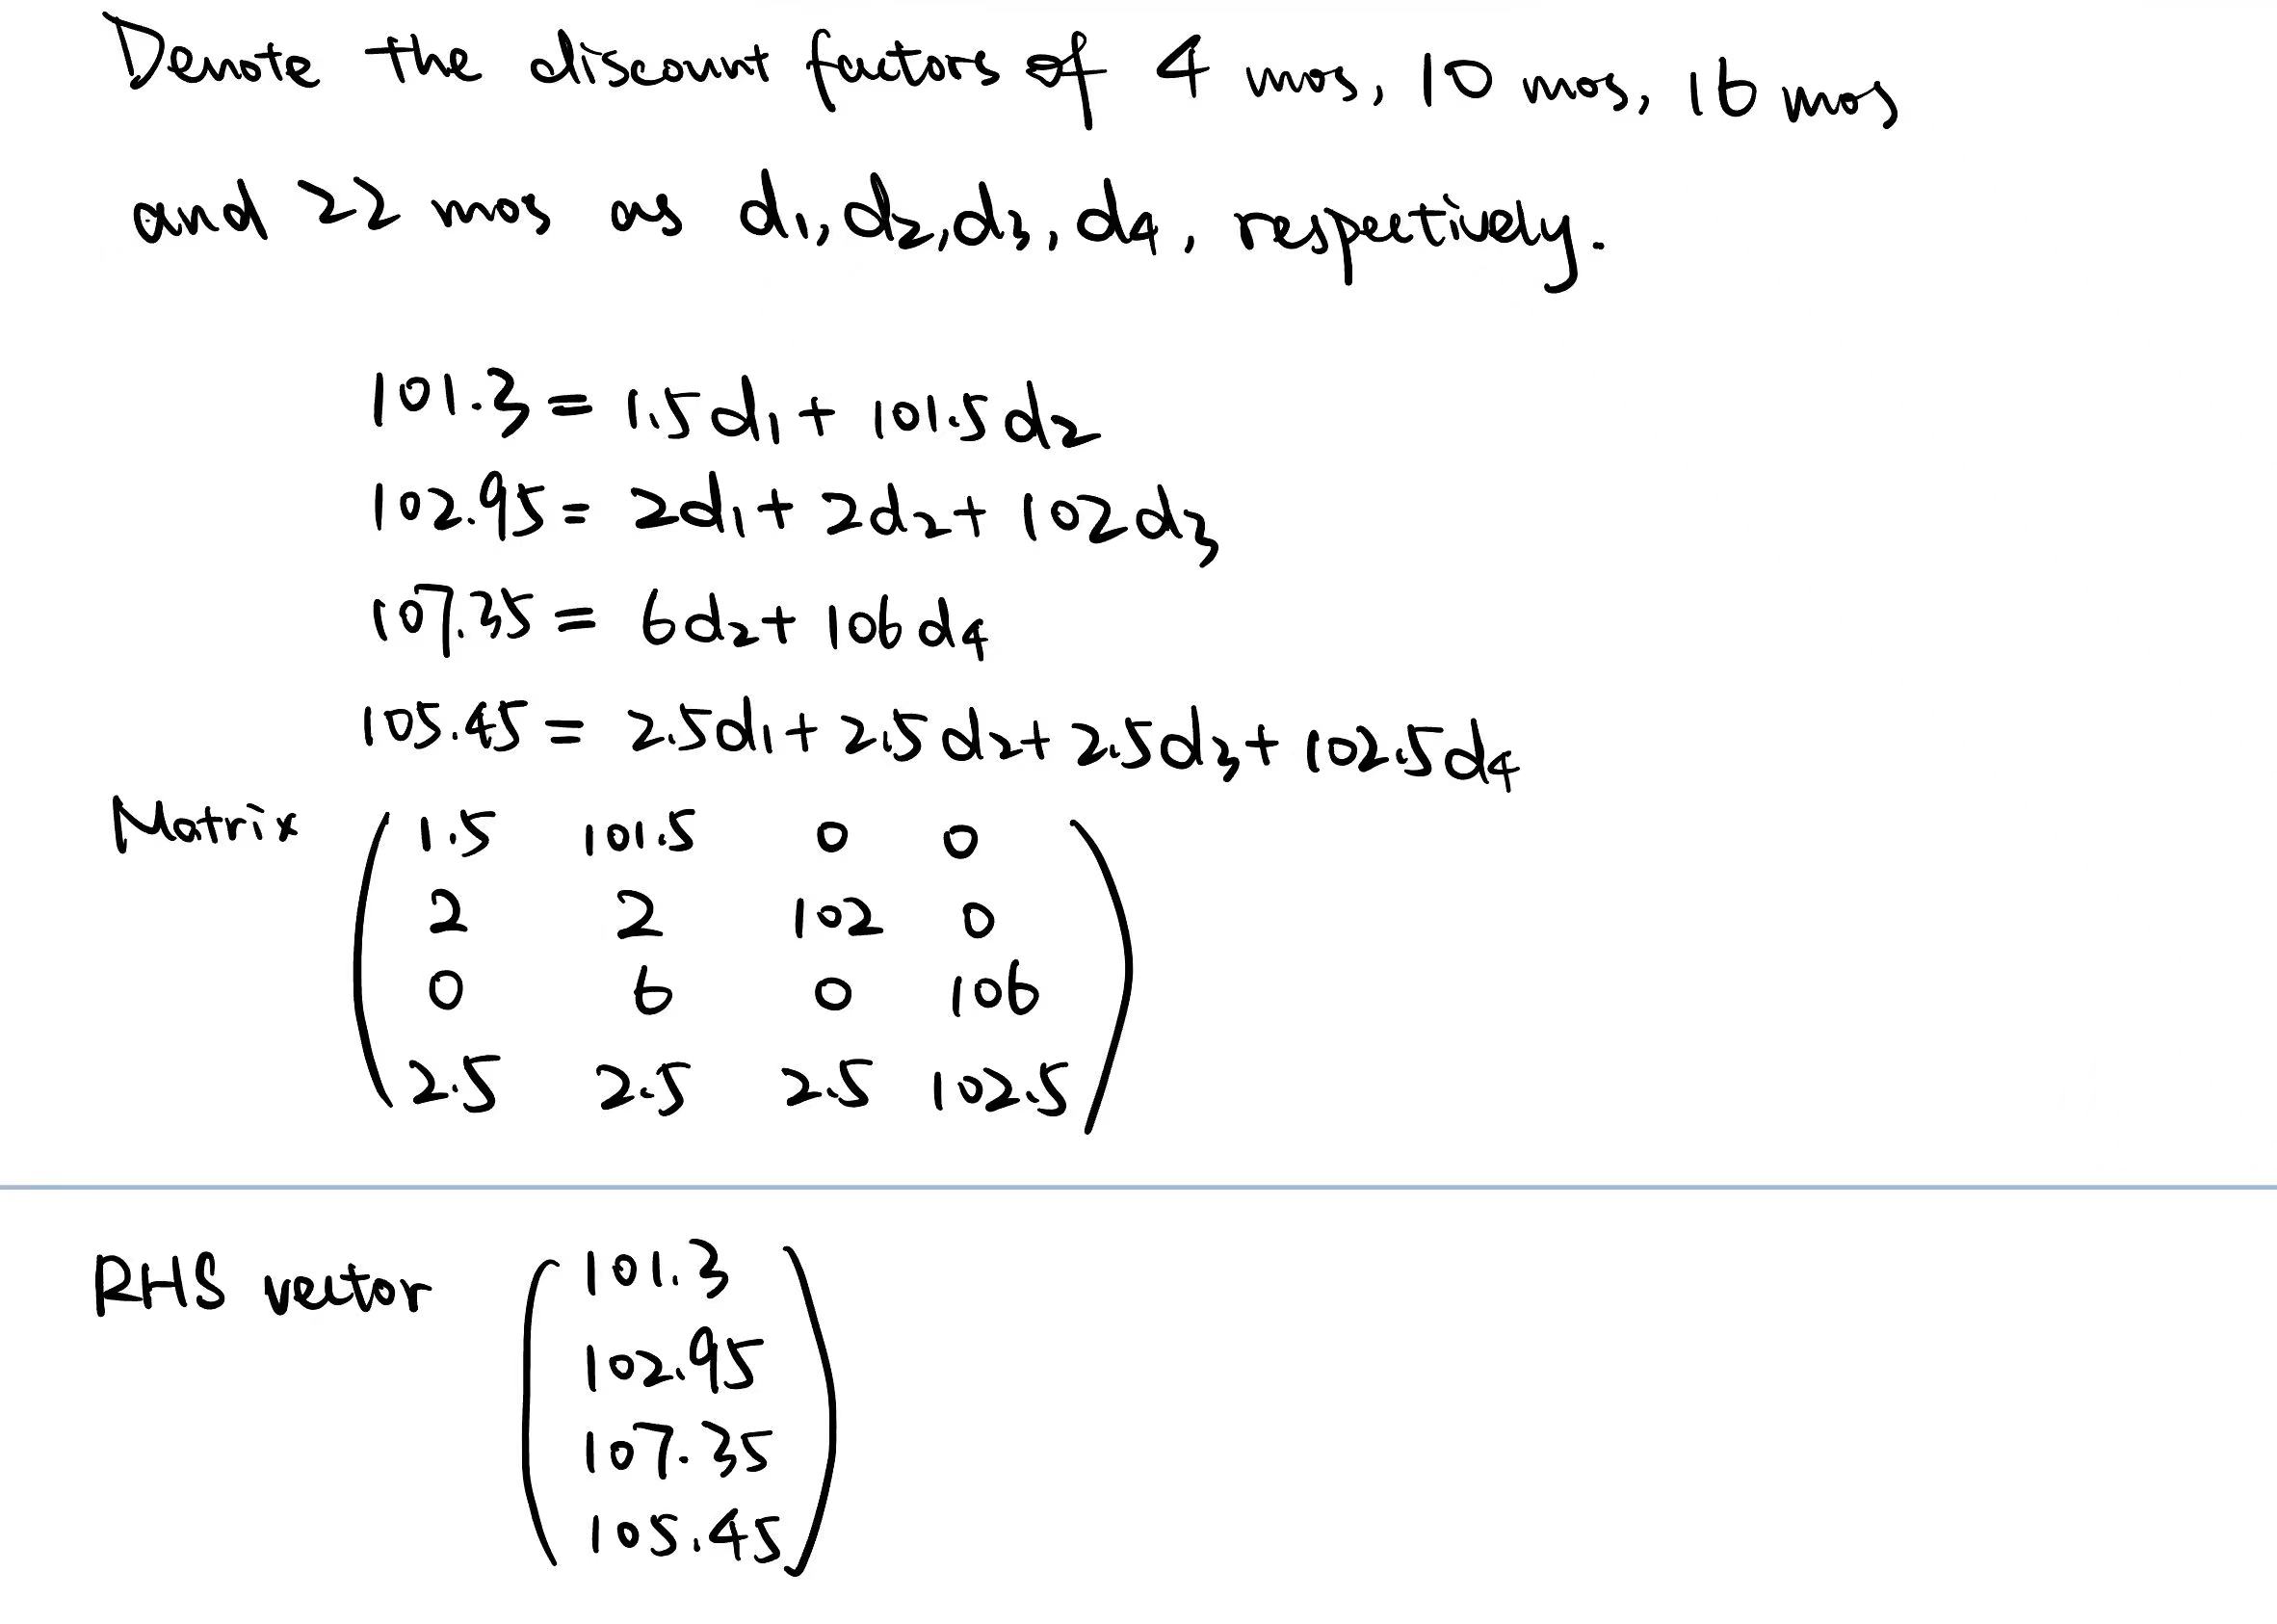 Denote the discount factors of 4 mos, 10 mos, 16 mos
and 22 mos as d1, d2, d3, d4, respectively.
101.3 = 1.5d1 + 101.5d2
102.95 = 2d1 + 2d2 + 102d3
107.35 = 6d2 + 106d4
105.45 = 2.5d1 + 2.5d2 + 2.5d3 + 102.5d4
Matrix
1.5 101.5 0 0
2 2 102 0
0 6 0 106
2.5 2.5 2.5 102.5
RHS vector
101.3
102.95
107.35
105.45